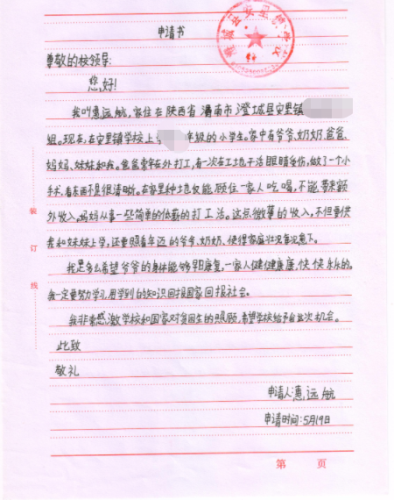 申请书
尊敬的校领导:
您好!
我叫惠远航,家住在陕西省渭南市澄城县安里镇
组。现在,在安里镇学校上 年级的小学生。家中有爷爷,奶奶,爸爸,
妈妈,妹妹和我。爸爸常年在外打工,有一次在工地干活眼睛受伤,做了一个小
手术,看东西不是很清晰。在家里种地仅能顾住一家人吃喝,不能带来额
外收入,妈妈从事一些简单的低薪的打工活。这点微薄的收入,不但要供
我和妹妹上学,还要照看年迈的爷爷,奶奶,使得家庭状况每况愈下。
我是多么希望爷爷的身体能够早日康复,一家人健健康康,快快乐乐的。
我一定要努力学习,用学到的知识回报国家回报社会。
我非常感激学校和国家对贫困生的照顾,希望学校给予自此次机会。
此致
敬礼
申请人:惠远航
申请时间:5月19日
装订线
第 页